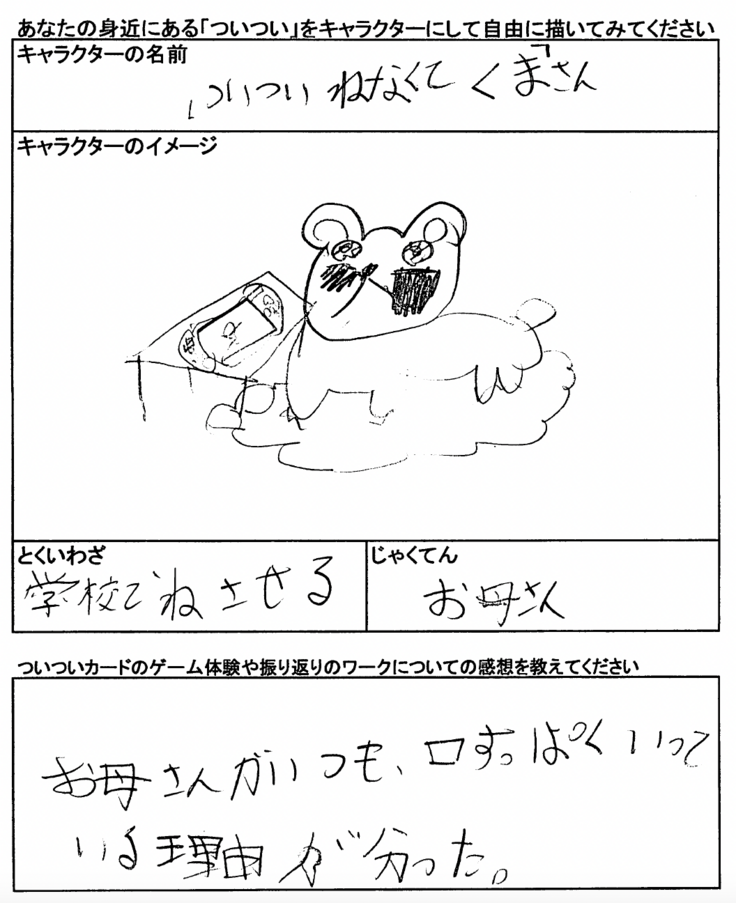 あなたの身近にある「ついつい」をキャラクターにして自由に描いてみてください
キャラクターの名前
ついついねなくてくまさん
キャラクターのイメージ
とくいわざ
学校でねさせる
じゃくてん
お母さん
ついついカードのゲーム体験や振り返りのワークについての感想を教えてください
お母さんがいつも、口すっぱくいって
いる理由が分った。